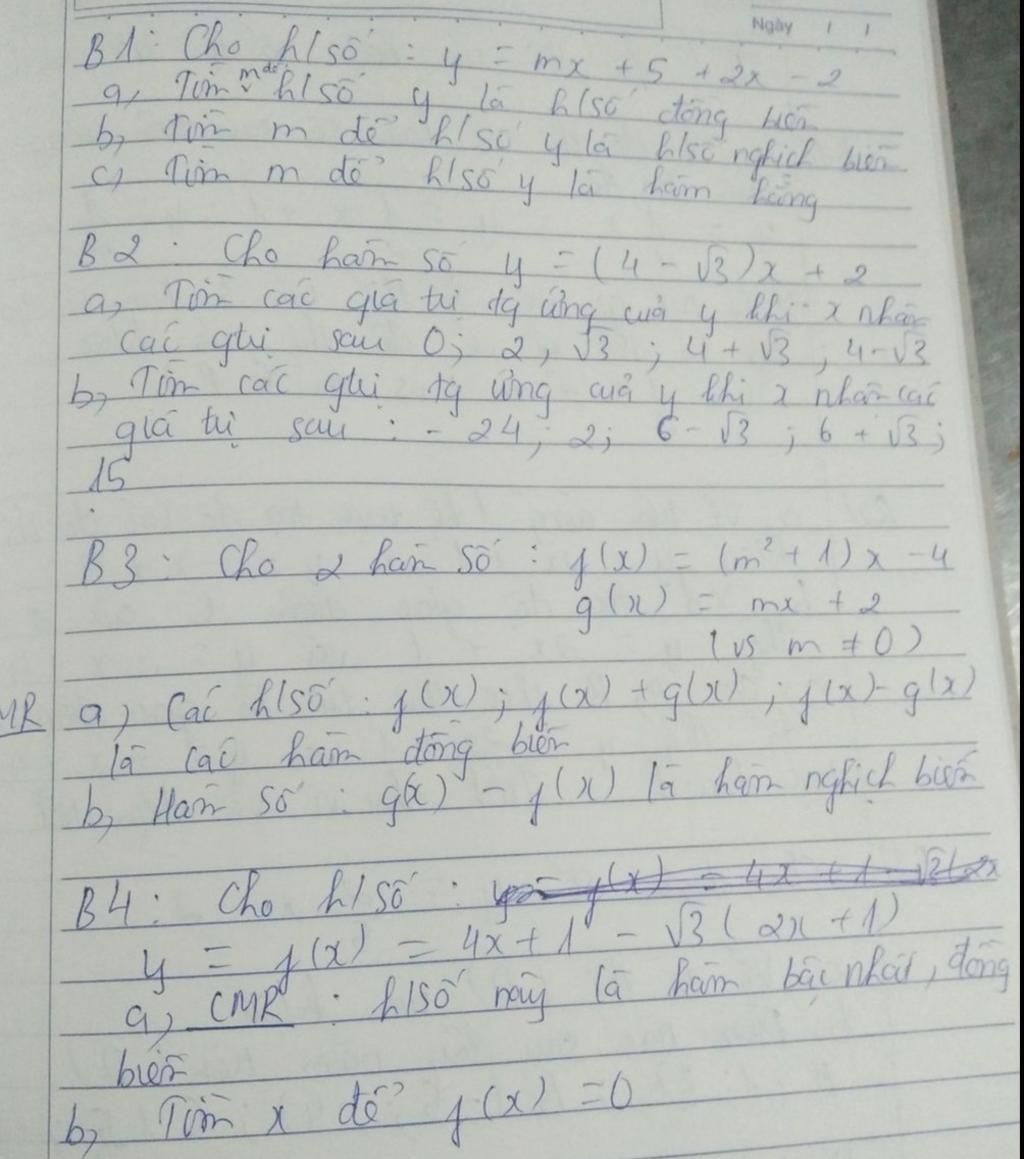 Ngày / /
B1: Cho h/số : y = mx + 5 + 2x - 2
a, Tìm m để h/số y là h/số đồng biến
b, Tìm m để h/số y là h/số nghịch biến
c, Tìm m để h/số y là hàm hằng
B2: Cho hàm số y = (4 - √3)x + 2
a, Tìm các giá trị tg ứng của y khi x nhận
các gtrị sau 0; 2, √3; 4 + √3, 4 - √3
b, Tìm các gtrị tg ứng của y khi x nhận các
giá trị sau : - 24; 2; 6 - √3; 6 + √3;
15
B3: Cho 2 hàm số : f(x) = (m² + 1)x - 4
g(x) = mx + 2
(vs m ≠ 0)
MR a, Các h/số : f(x); f(x) + g(x); f(x) - g(x)
là các hàm đồng biến
b, Hàm số : g(x) - f(x) là hàm nghịch biến
B4: Cho h/số :
y = f(x) = 4x + 1 - √3(2x + 1)
a, CMR : h/số này là hàm bậc nhất, đồng
biến
b, Tìm x để f(x) = 0